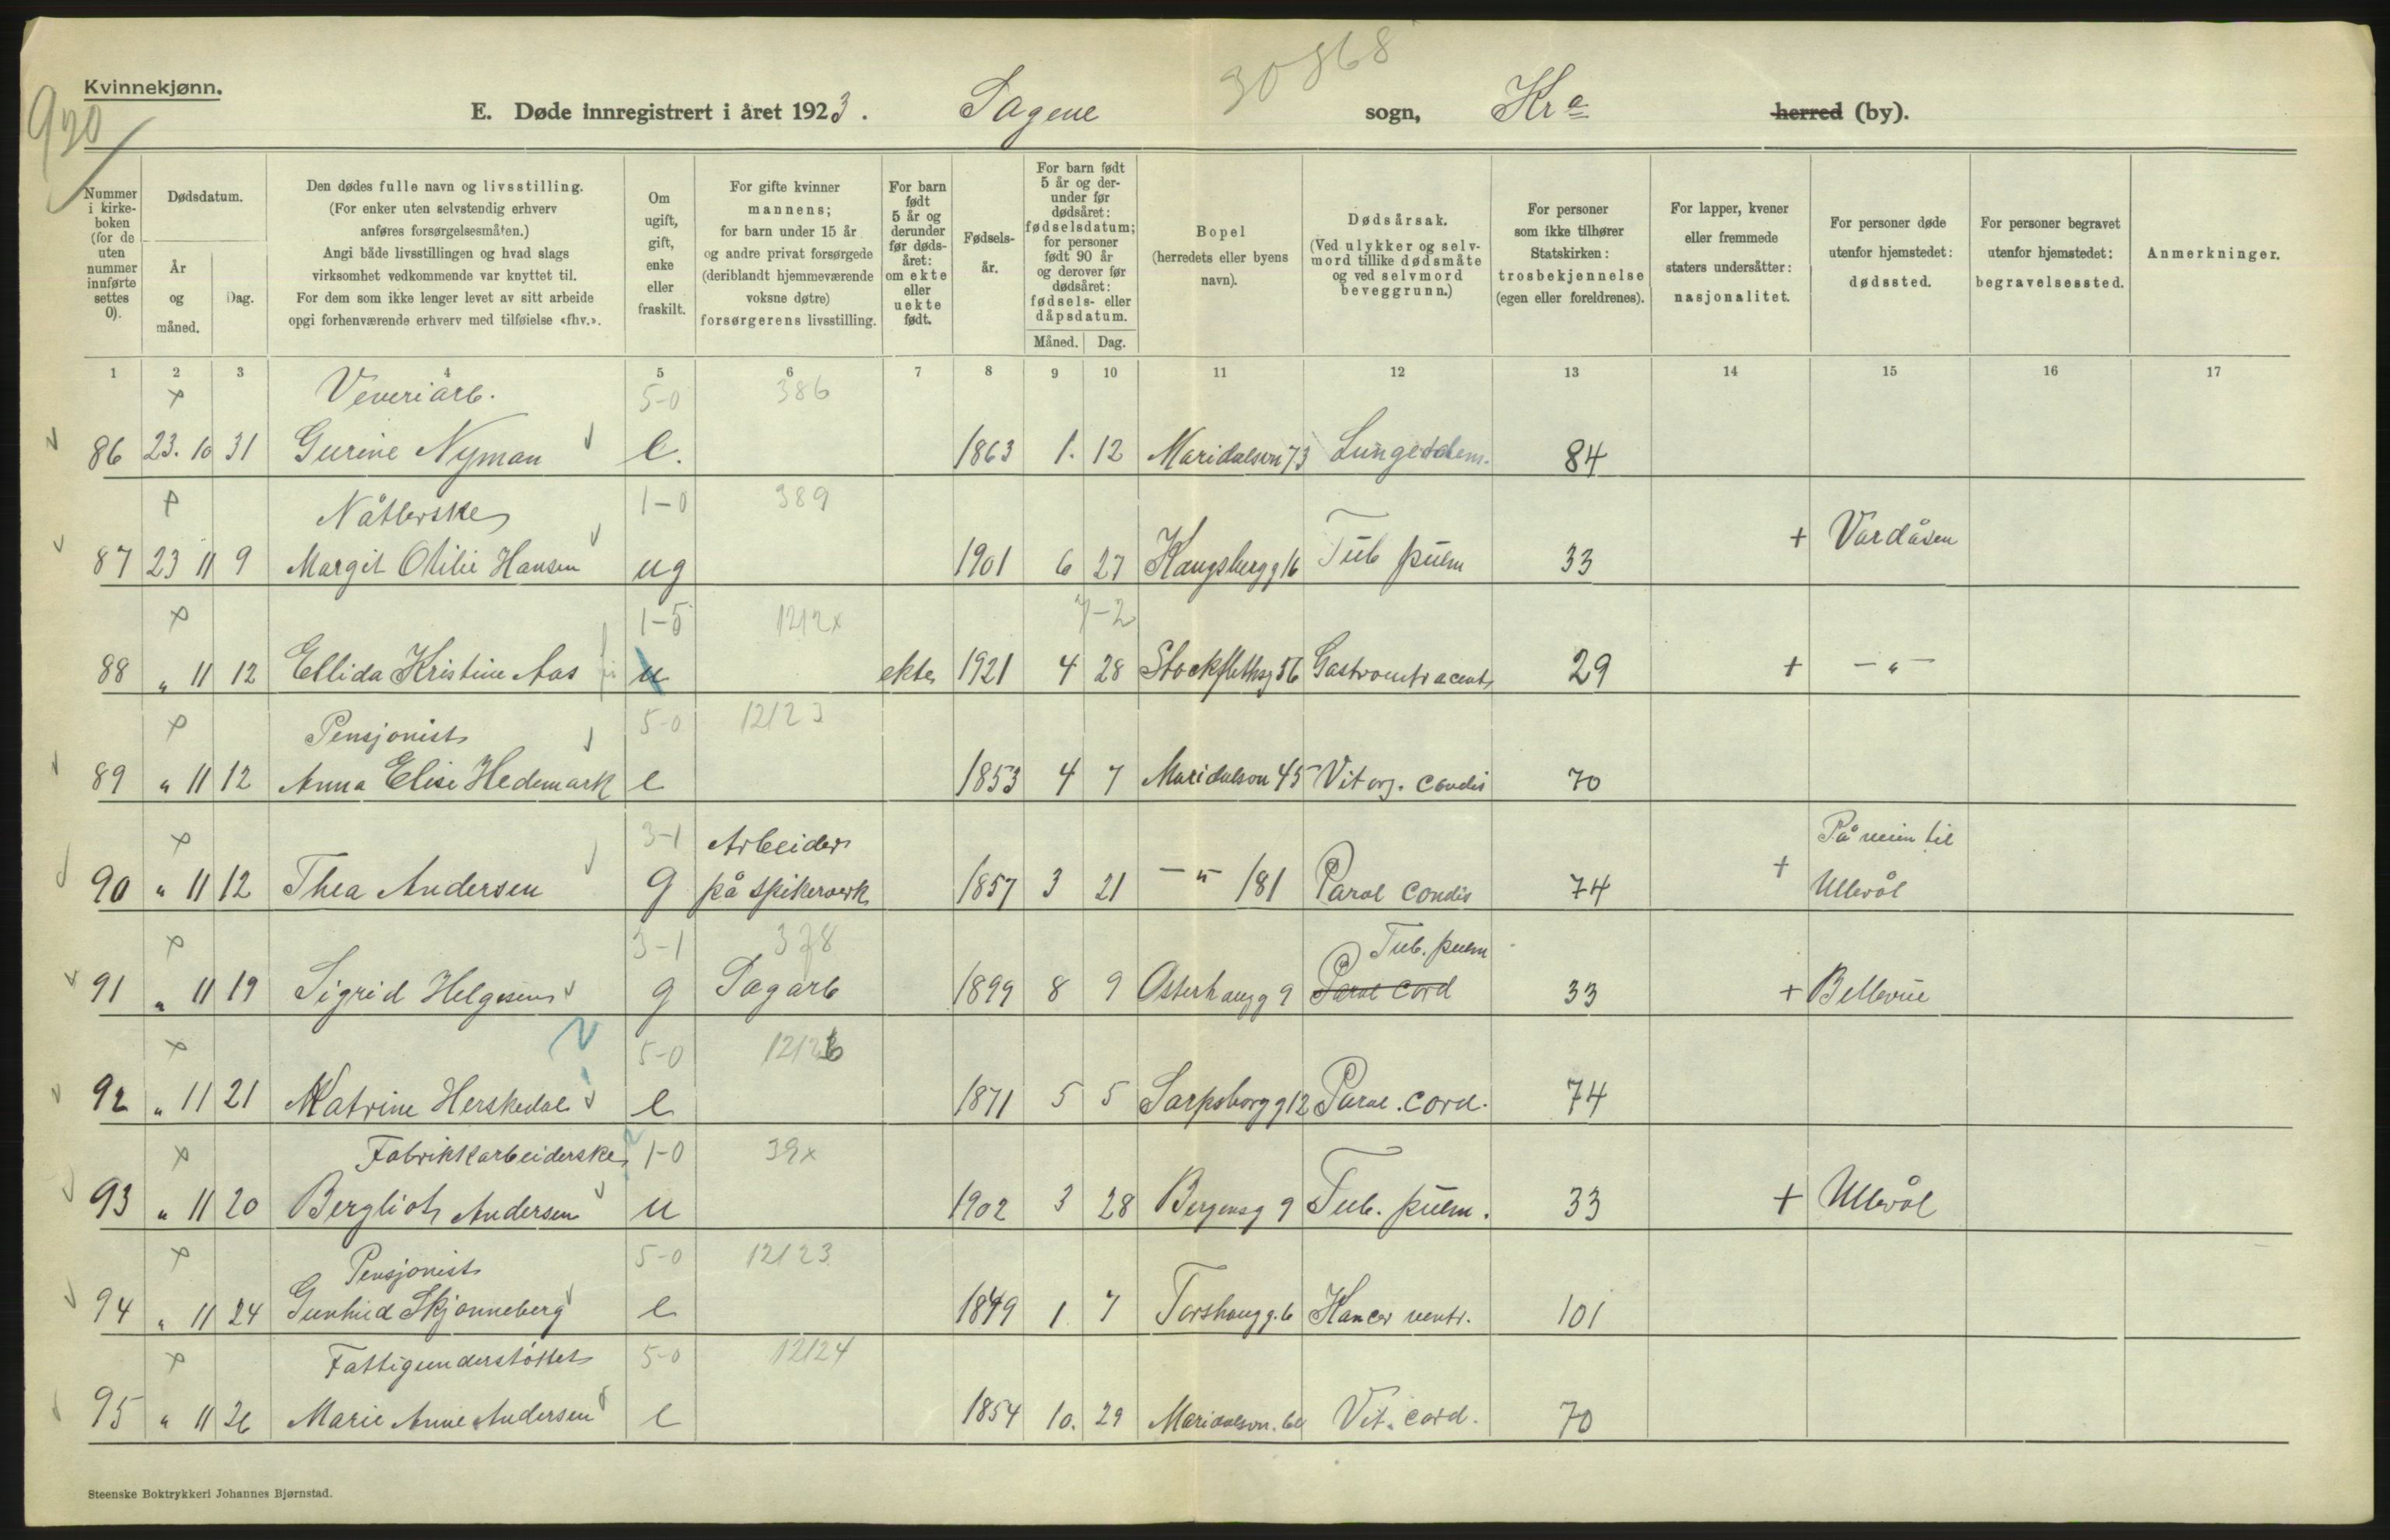 Kvinnekjønn.
920
30868
E. Døde innregistrert i året 1923. Sagene sogn, Kra herred (by).
Nummer i kirkeboken (for de uten nummer innførte settes 0).
Dødsdatum.
År og måned.
Dag.
Den dødes fulle navn og livsstilling.
(For enker uten selvstendig erhverv anføres forsørgelsesmåten.)
Angi både livsstillingen og hvad slags virksomhet vedkommende var knyttet til.
For dem som ikke lenger levet av sitt arbeide opgi forhenværende erhverv med tilføielse «fhv.».
Om ugift, gift, enke eller fraskilt.
For gifte kvinner mannens; for barn under 15 år og andre privat forsørgede (deriblandt hjemmeværende voksne døtre) forsørgerens livsstilling.
For barn født 5 år og derunder før dødsåret: om ekte eller uekte født.
Fødselsår.
For barn født 5 år og derunder før dødsåret: fødselsdatum; for personer født 90 år og derover før dødsåret: fødsels- eller dåpsdatum.
Måned. Dag.
Bopel (herredets eller byens navn).
Dødsårsak.
(Ved ulykker og selvmord tillike dødsmåte og ved selvmord beveggrunn.)
For personer som ikke tilhører Statskirken: trosbekjennelse (egen eller foreldrenes).
For lapper, kvener eller fremmede staters undersåtter: nasjonalitet.
For personer døde utenfor hjemstedet: dødssted.
For personer begravet utenfor hjemstedet: begravelsessted.
Anmerkninger.
1 2 3 4 5 6 7 8 9 10 11 12 13 14 15 16 17
x Veveriarb. 5-0 386
86 23. 10 31 Gurine Nyman e. 1863 1. 12 Maridalsvn 73 84
x Nåtlerske 1-0 389
87 23 11 9 Margit Otilie Hansen ug 1901 6 27 16 Tub pulm 33 + Vardåsen
x 1-5 1212x 7-2
88 " 11 12 Ellida Kristine Aas u ekte 1921 4 28 Stockflethsg 56 29 + - " -
x Pensjonist 5-0 12123
89 " 11 12 Anna Elise Hedemark e 1853 4 7 Maridalsvn 45 Vit org. cordis 70
x 3-1 Arbeider På veien til
90 " 11 12 Thea Andersen g på spikerverk 1857 3 21 - " - 181 Paral cordis 74 + Ullevål
x 3-1 378 Tub. pulm
91 " 11 19 Sigrid Helgesen g Sagarb 1899 8 9 Osterhausg 9 Paral cord 33 + Bellevue
x 5-0 12126
92 " 11 21 Katrine Herskedal e 1871 5 5 Sarpsborgg 12 Paral. cord. 74
x Fabrikkarbeiderske 1-0 39x
93 " 11 20 Bergliot Andersen u 1902 3 28 Bergensg 9 Tub. pulm. 33 + Ullevål
x Pensjonist 5-0 12123
94 " 11 24 Gunhild Skjønneberg e 1849 1 7 Torshaugg. 6 Kancer ventr. 101
x Fattigunderstøttet 5-0 12124
95 " 11 26 Marie Anne Andersen e 1854 10. 29 Vit. cord. 70
Steenske Boktrykkeri Johannes Bjørnstad.